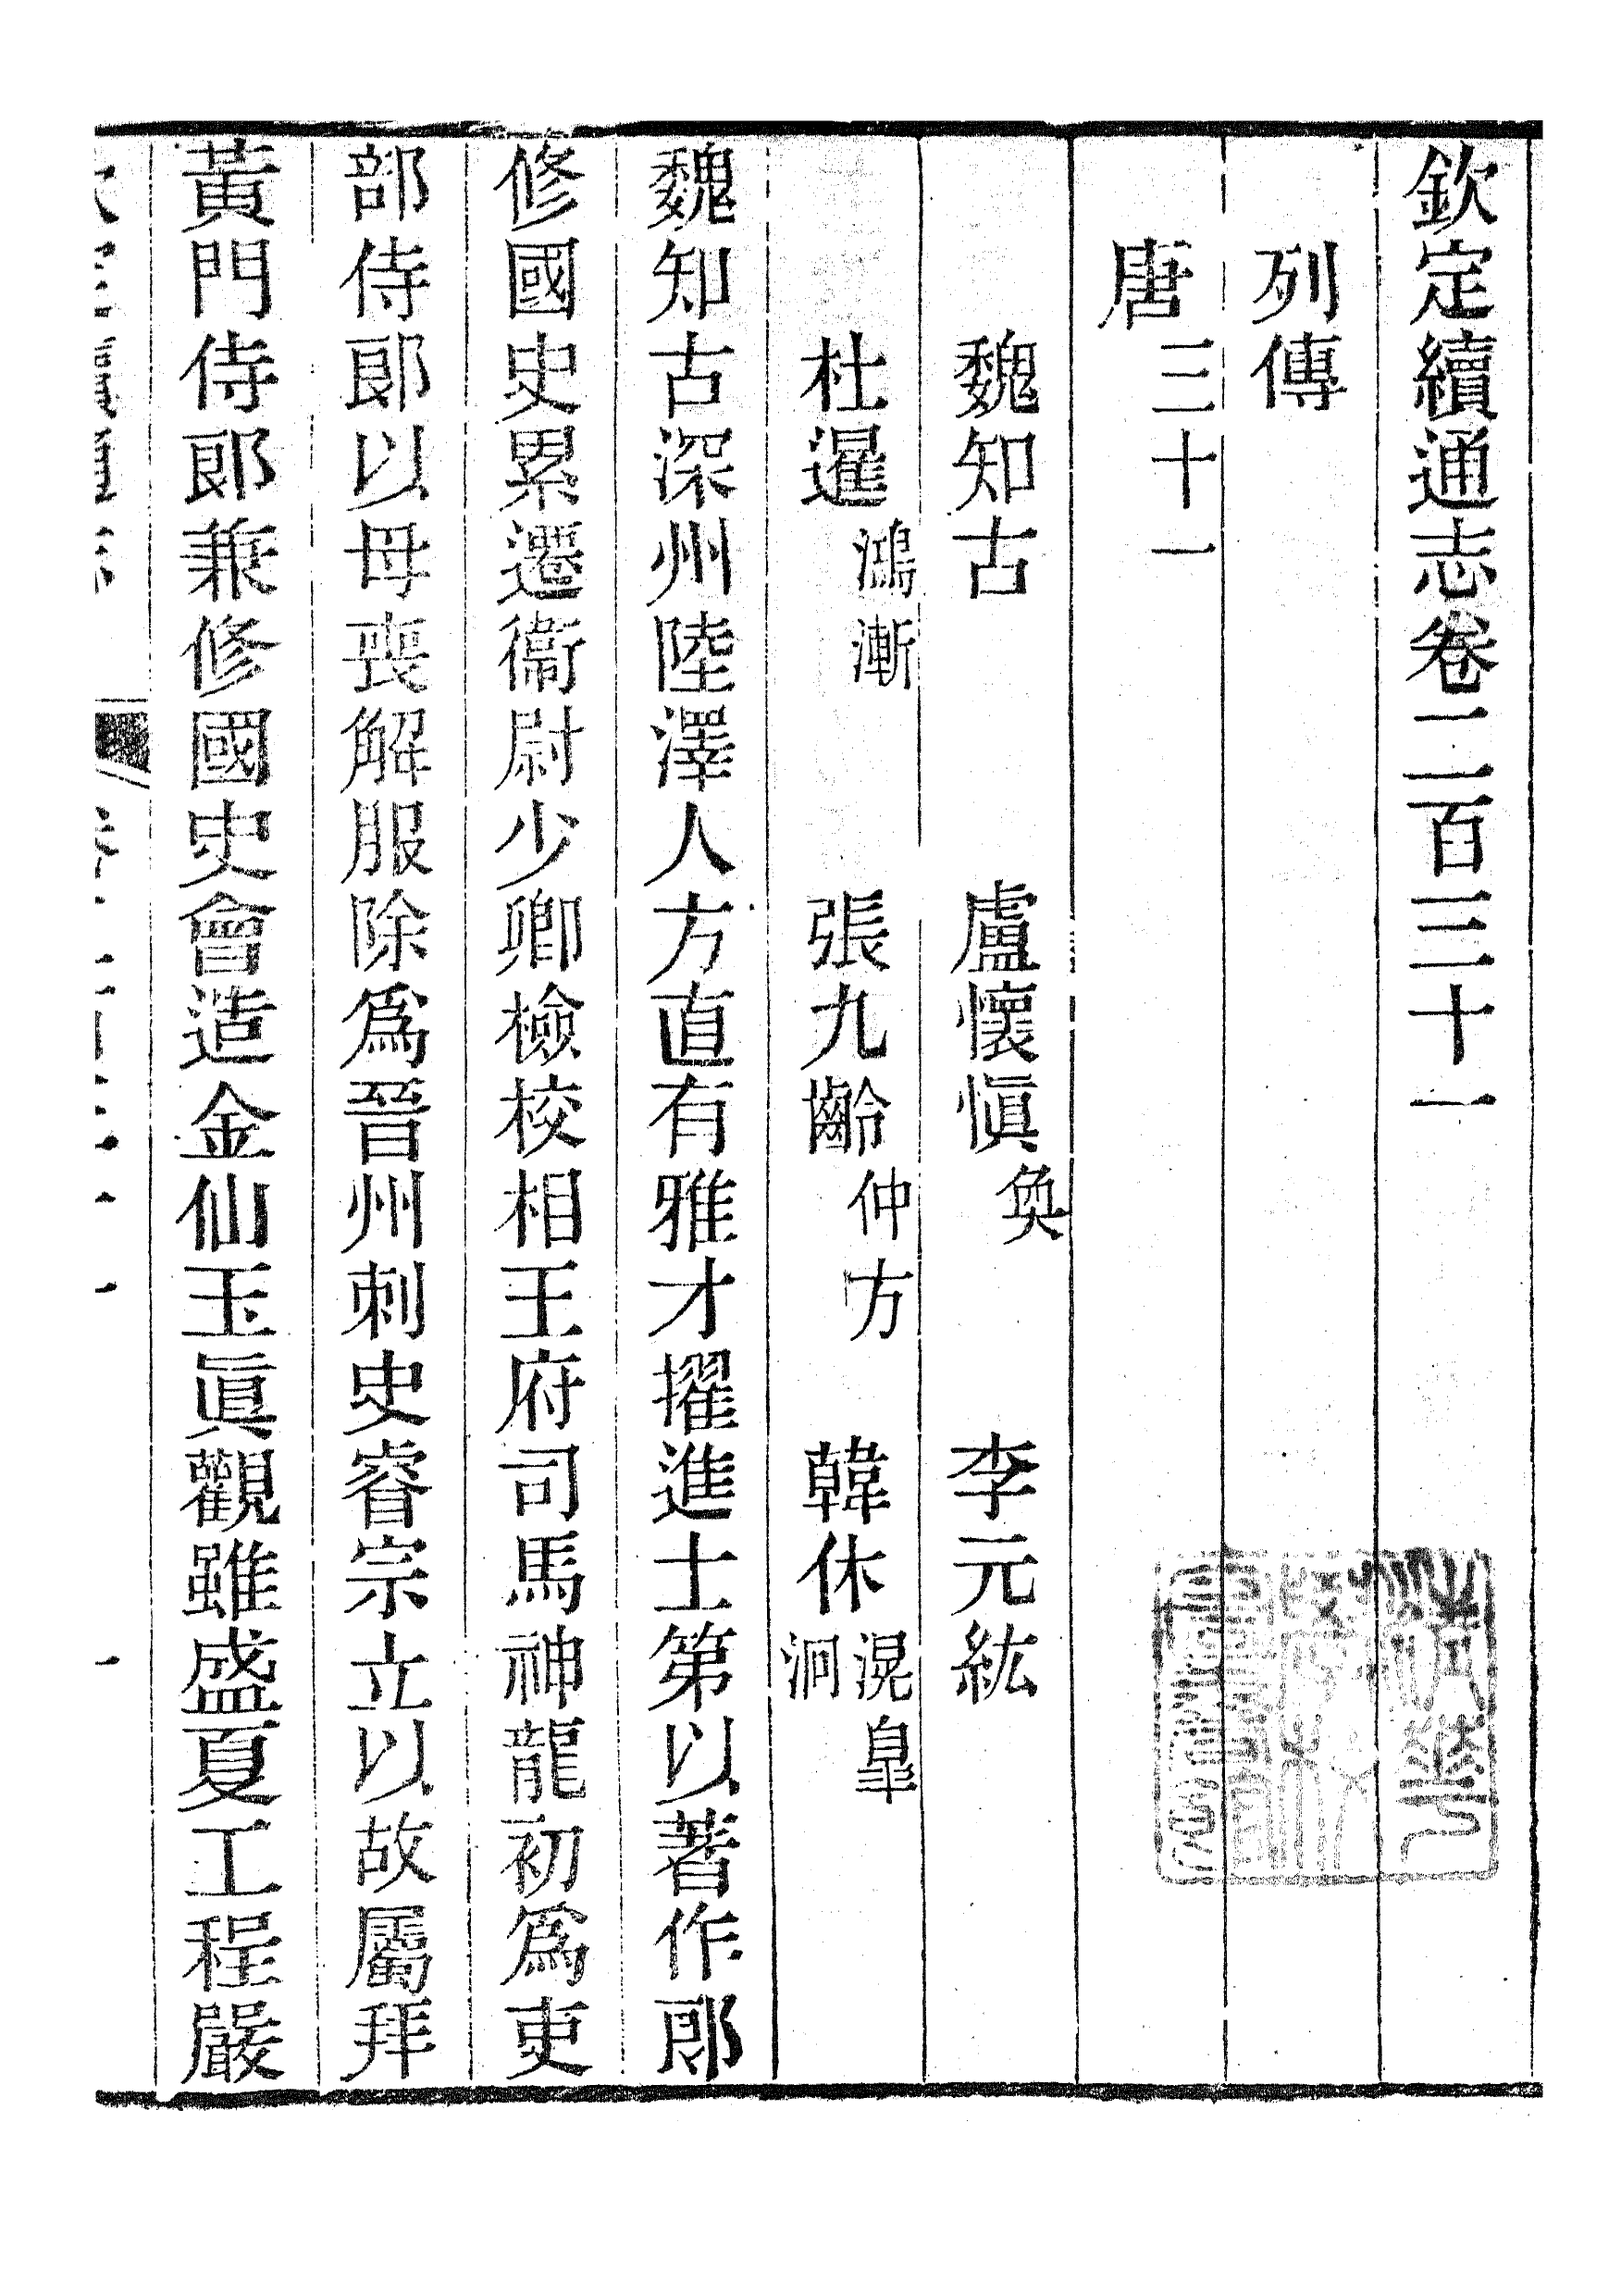 欽定續通志卷二百三十一
列傳
唐三十一
魏知古　盧懷愼奐　李元紘
杜暹鴻漸　張九齡仲方　韓休滉皐洄
魏知古深州陸澤人方直有雅才擢進士第以著作郞
修國史累遷衞尉少卿檢校相王府司馬神龍初爲吏
部侍郞以母喪解服除爲晉州刺史睿宗立以故屬拜
黃門侍郞兼修國史會造金仙玉眞觀雖盛夏工程嚴